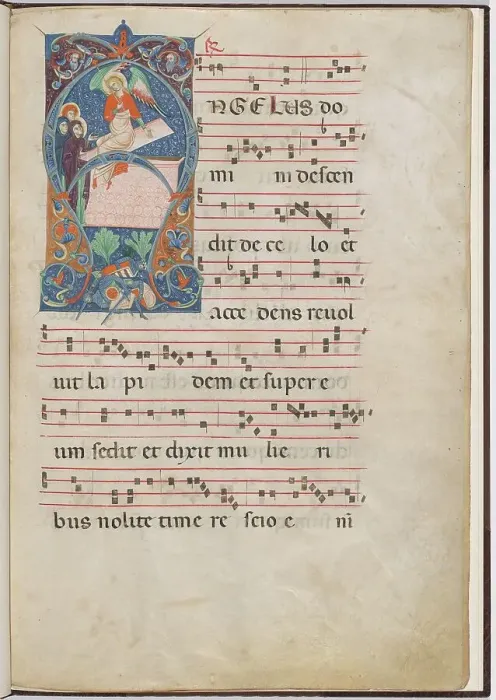 ℟
ANGELUS do
mi ni descen
dit de ce lo et
acce dens revol
vit la pi dem et super e
um sedit et dixit mu lie ri
bus nolite time re scio e ni